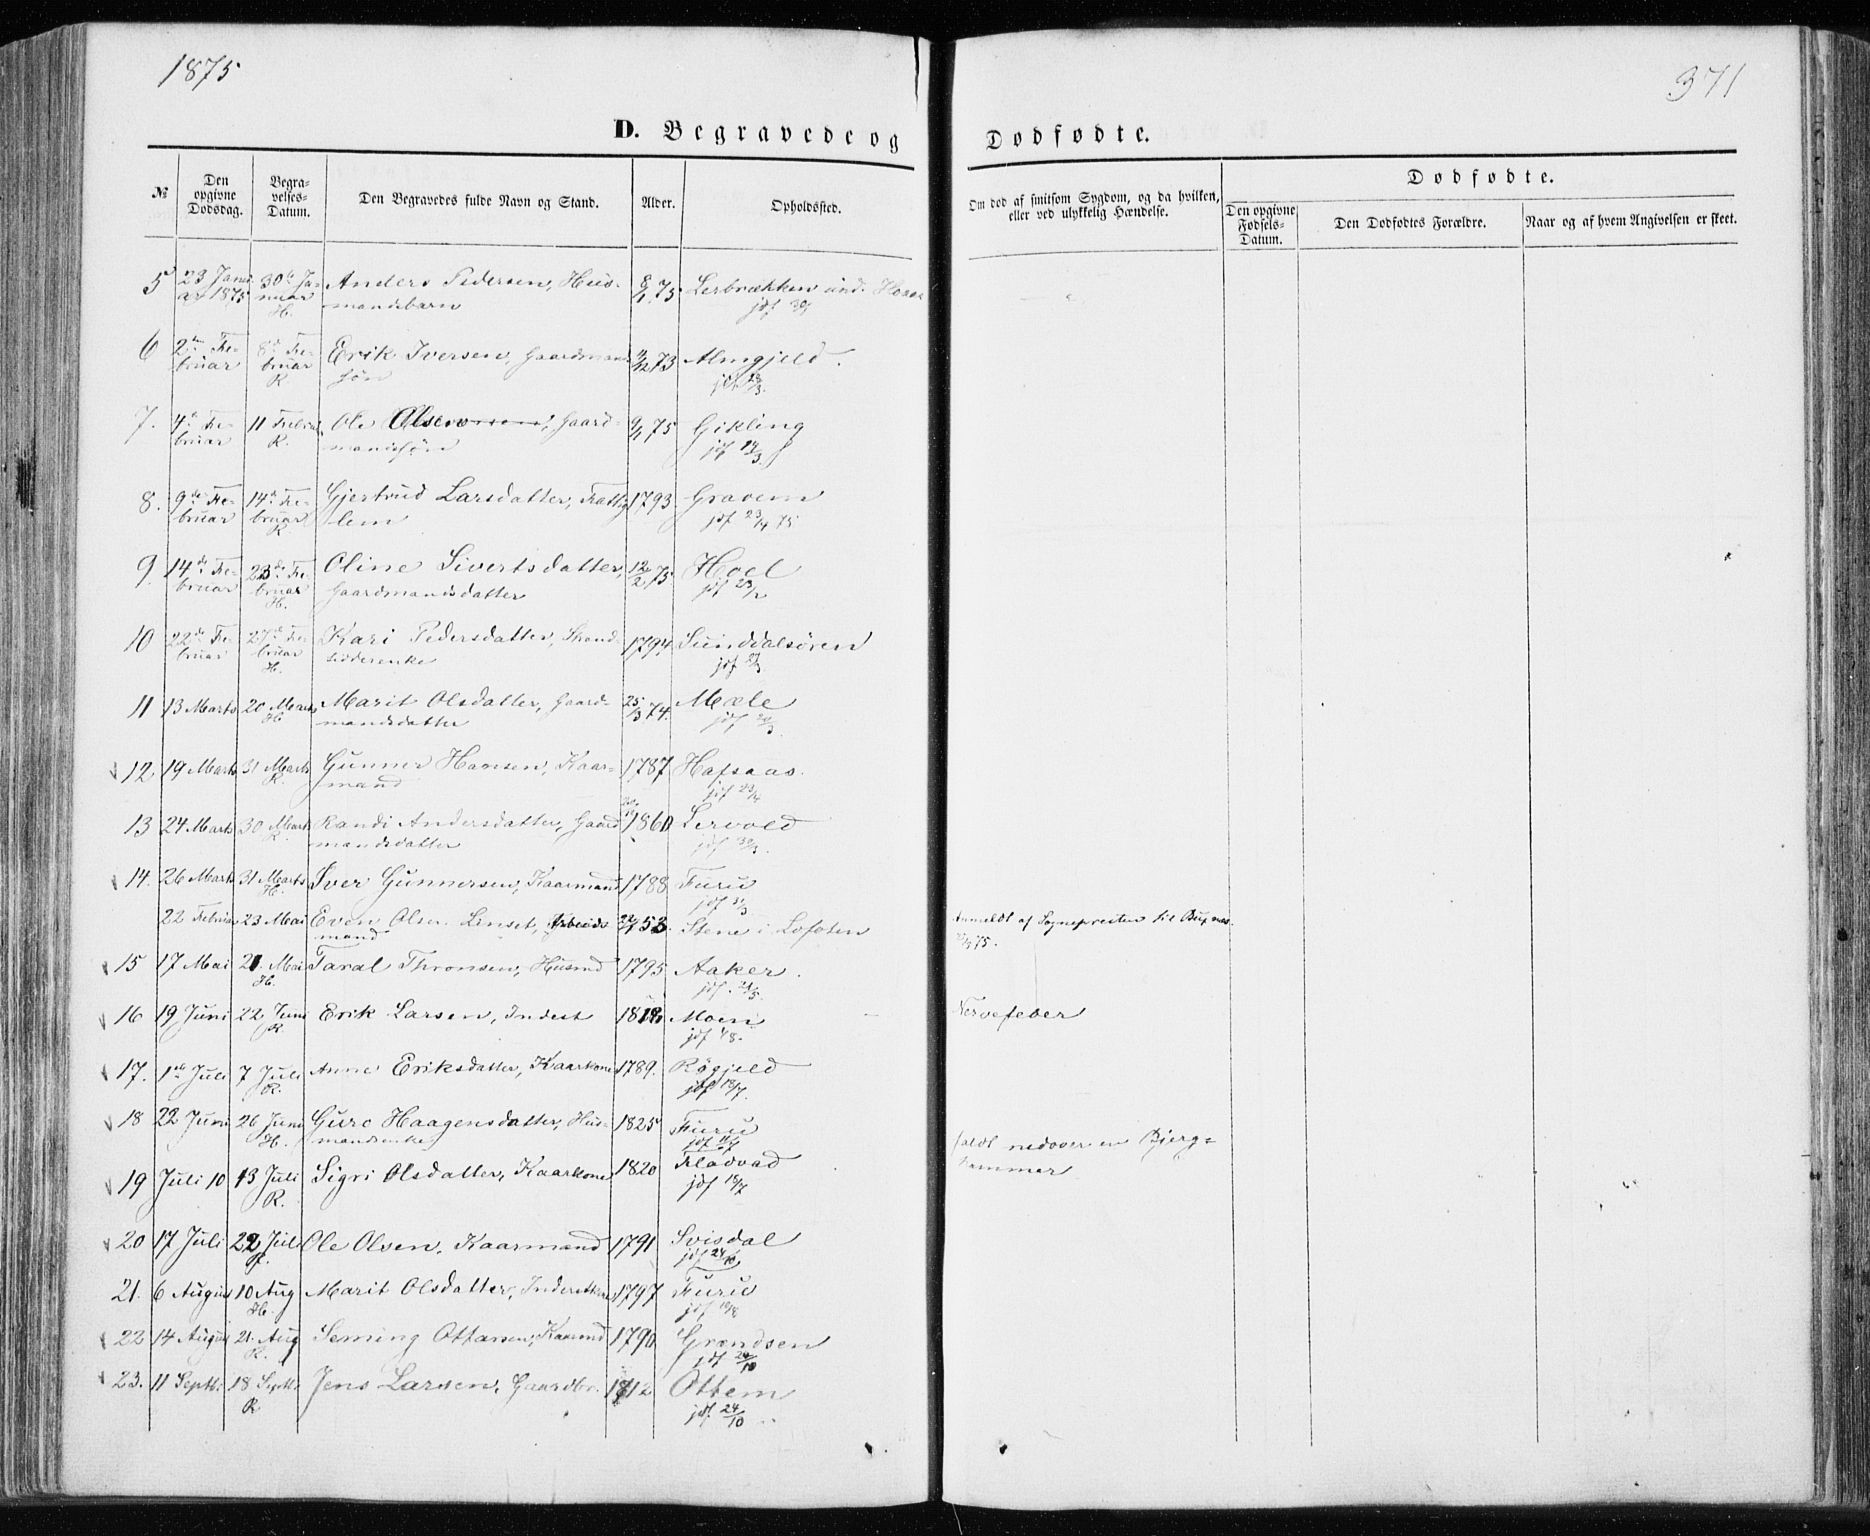 1875
371
D. Begravede og Dødfødte.
№
Den opgivne Dødsdag.
Begravelses-Datum.
Den Begravedes fulde Navn og Stand.
Alder.
Opholdssted.
Om død af smitsom Sygdom, og da hvilken, eller ved ulykkelig Hændelse.
Dødfødte.
Den opgivne Fødsels-Datum.
Den Dødfødtes Forældre.
Naar og af hvem Angivelsen er skeet.
5 23 Januar 1875 30te Januar H. Anders Pedersen, Hus-
mandsbarn 8/1 75 Lerbrækken und.
6 2den Februar 8de Februar R Erik Iversen, Gaardmands
søn 11/12 73 Almgjeld.
7. 4de Februar 11 Februar R. Ole Olsen, Gaard-
mandssøn 9/1 75 Gikling
jdf 14/3.
8. 9de Februar 14de Februar R Gjertrud Larsdatter, Fattig
lem 1793 Gravem
jdf 23/4 75
9. 14de Februar 23de Februar H. Oline Sivertsdatter,
Gaardmandsdatter 12/2 75 Hoel
jdf 23/2
10 22de Februar 27de Februar H. Kari Pedersdatter, Strand-
sidderenke 1794 Sunddalsøren
jdf
11 13 Marts 20 Marts H. Marit Olsdatter, Gaard-
mandsdatter 25/3 74. Mæle
jdf 20/3
12. 19 Marts 31 Marts R. Gunner Hansen, Kaar-
mand 1787 Hafsaas.
jdf 23/4
13 24 Marts 30 Marts R. Randi Andersdatter, Gaard
mandsdatter 1860 Lervold
jdf 30/3.
14. 26 Marts 31 Marts H. Iver Gunnersen, Kaarmand 1788 Furu
jdf 31/3
22 Februar 23 Mai Even Olsen Linset, Arbeids
mand 53. Stene i Lofoten Anmeldt af Sognepresten til Buxnæs
15 17 Mai 21. Mai H. Taral Thronsen, Husmd 1795 Aaker.
jdf. 24/5.
16 19 Juni 22 Juni R. Erik Larsen, Inderst Moen Nervefeber
jdf 4/8.
17. 1ste Juli 7 Juli R. Anne Eriksdatter, Kaarkone 1789. Røgjeld
jdf 18/7.
18 22 Juni 26 Juni H. Guro Haagensdatter, Hus-
mandsenke 1825 Furu faldt nedover en Bjerg=
hammer
19 Juli 10 13 Juli R. Sigri Olsdatter, Kaarkone 1820 Fladvad
jdf 18/7
20 17 Juli 22 Juli Ole Olsen, Kaarmand 1791 Svisdal
jdf 24/10
21. 6 August 10 Aug H. Marit Olsdatter, 1797 Furu
jdf
22 14 August 21. Aug R. Seming Ottarsen, Kaarmd 1790 Grændsen
jdf 24/10
23. 11 Septb. 18 Septb. R Jens Larsen, Gaardbr. 1812 Ottem
jdf. 24/10